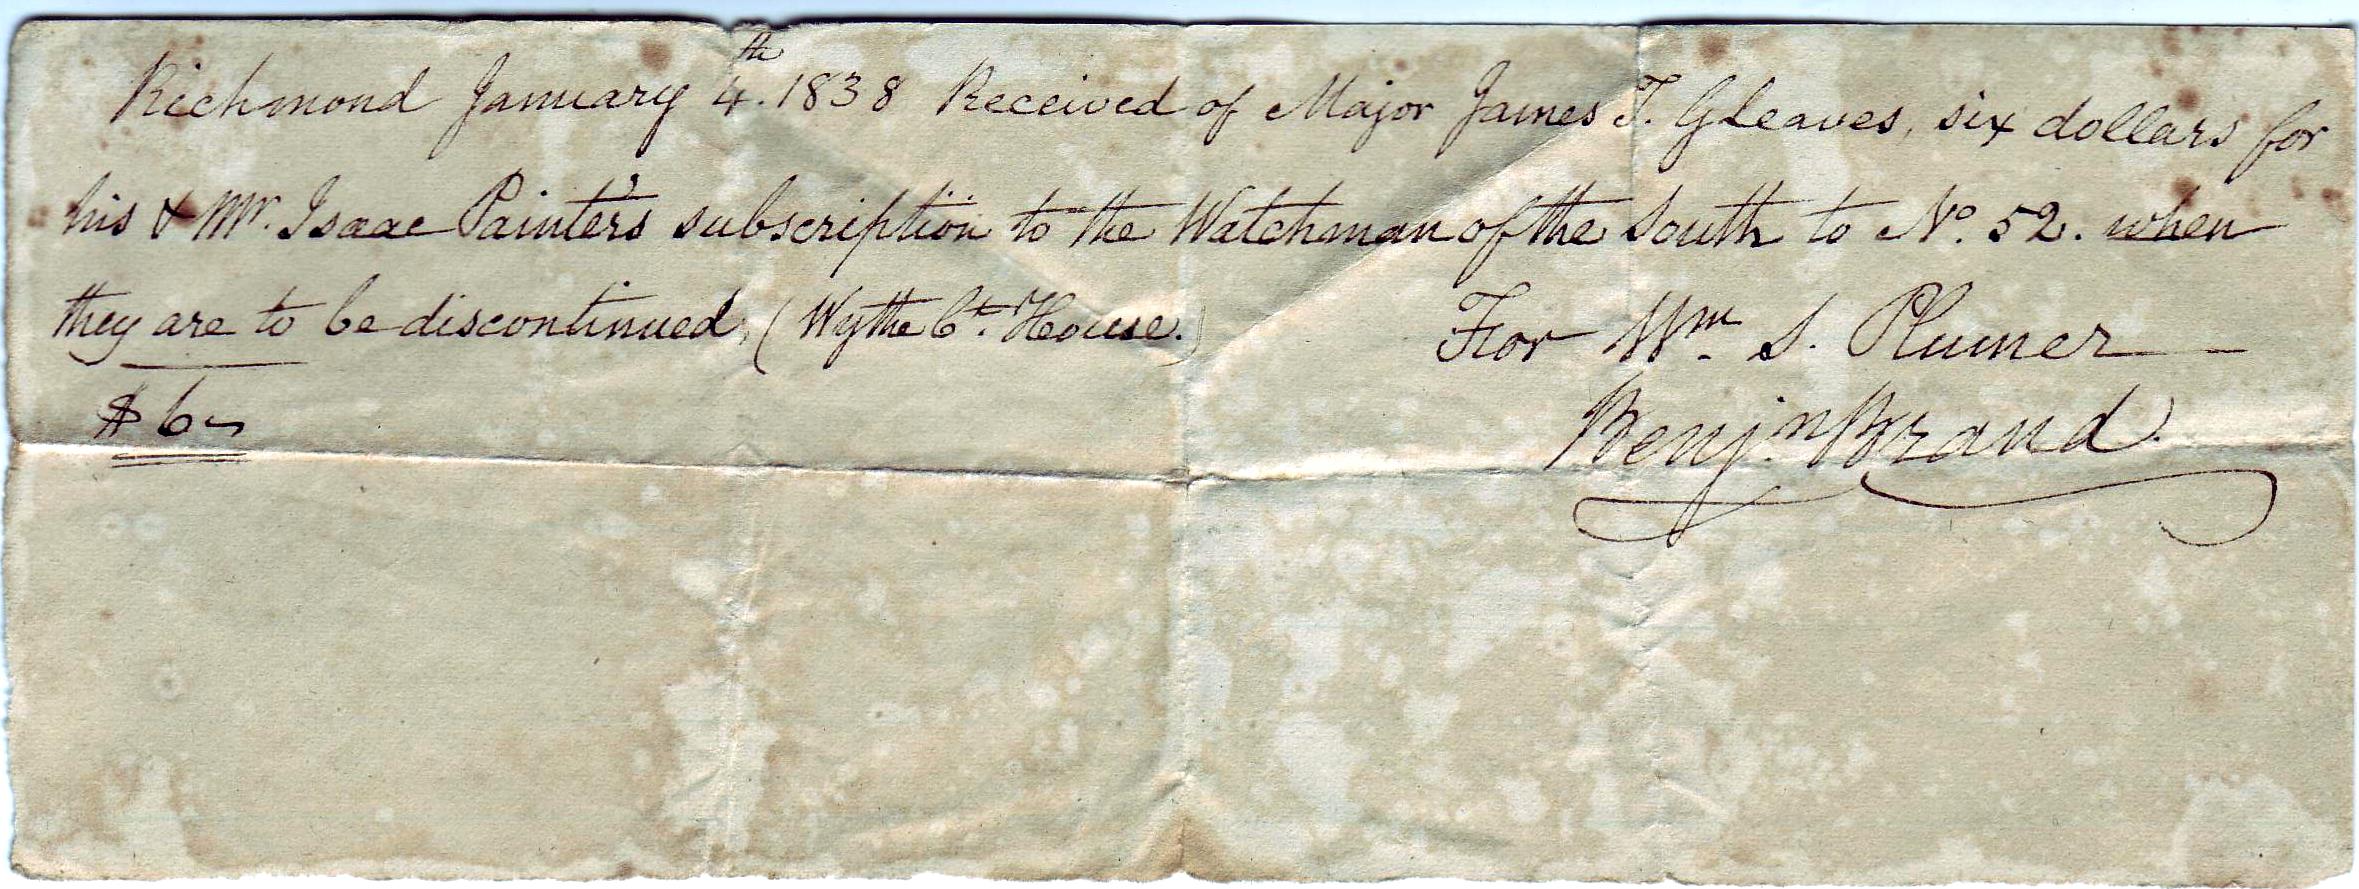 Richmond January 4th. 1838 Received of Major James T. Gleaves, six dollars for
his & Mr. Isaac Painter's subscription to the Watchman of the South to No. 52. when
they are to be discontinued, (Wythe Ct. House.) For Wm. S. Plumer
$6 Benjn. Brand